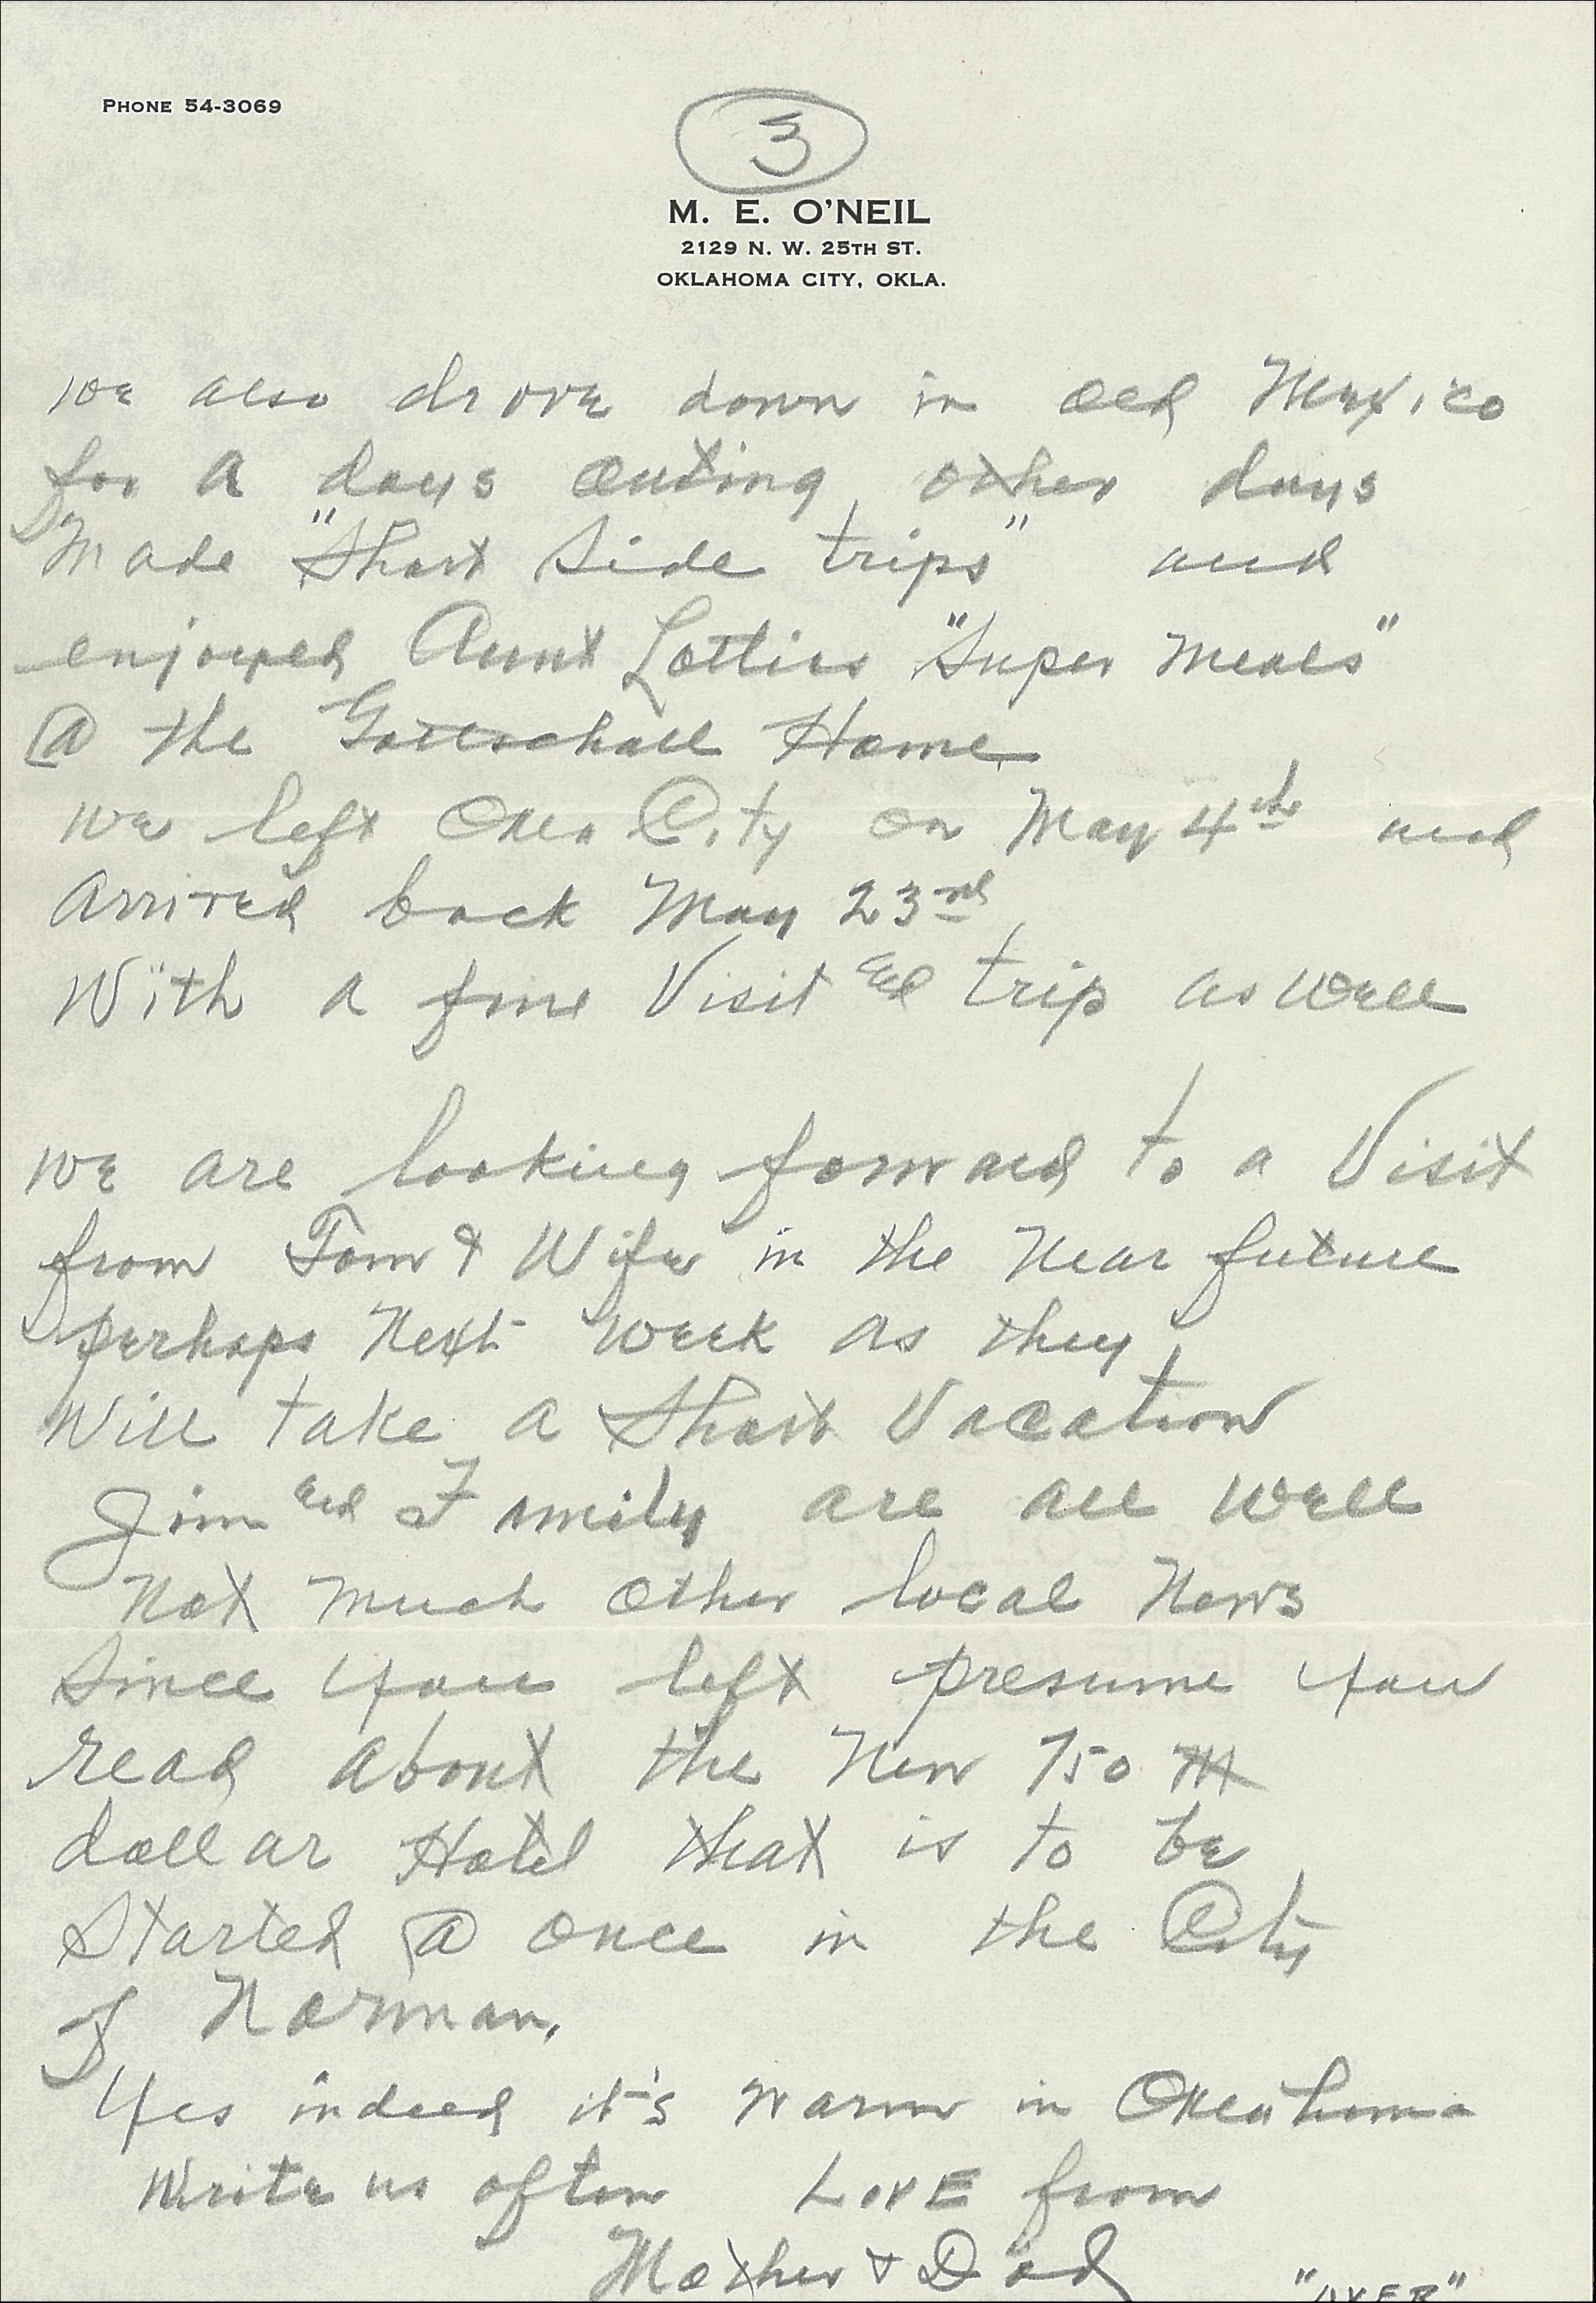 PHONE 54-3069
3
M. E. O'NEIL
2129 N. W. 25TH ST.
OKLAHOMA CITY, OKLA.
we also drove down in old Mexico
for a days outing, other days
Made "Short Side trips" and
enjoyed Aunt Lotties "Super Meals"
@ the Gottschall Home
we left Okla City on May 4th and
Arrived back May 23rd
With a fine Visit and trip as well
we are looking forward to a Visit
from Tom & Wife in the Near future
perhaps Next week as they
Will take a Short Vacation
Jim and Family are all well
Not Much other local News
Since you left presume you
read about the New 750 M
dollar Hotel that is to be
Started @ once in the City
of Norman.
Yes indeed it's warm in Oklahoma
Write us often LOVE from
Mother & Dad "OVER"